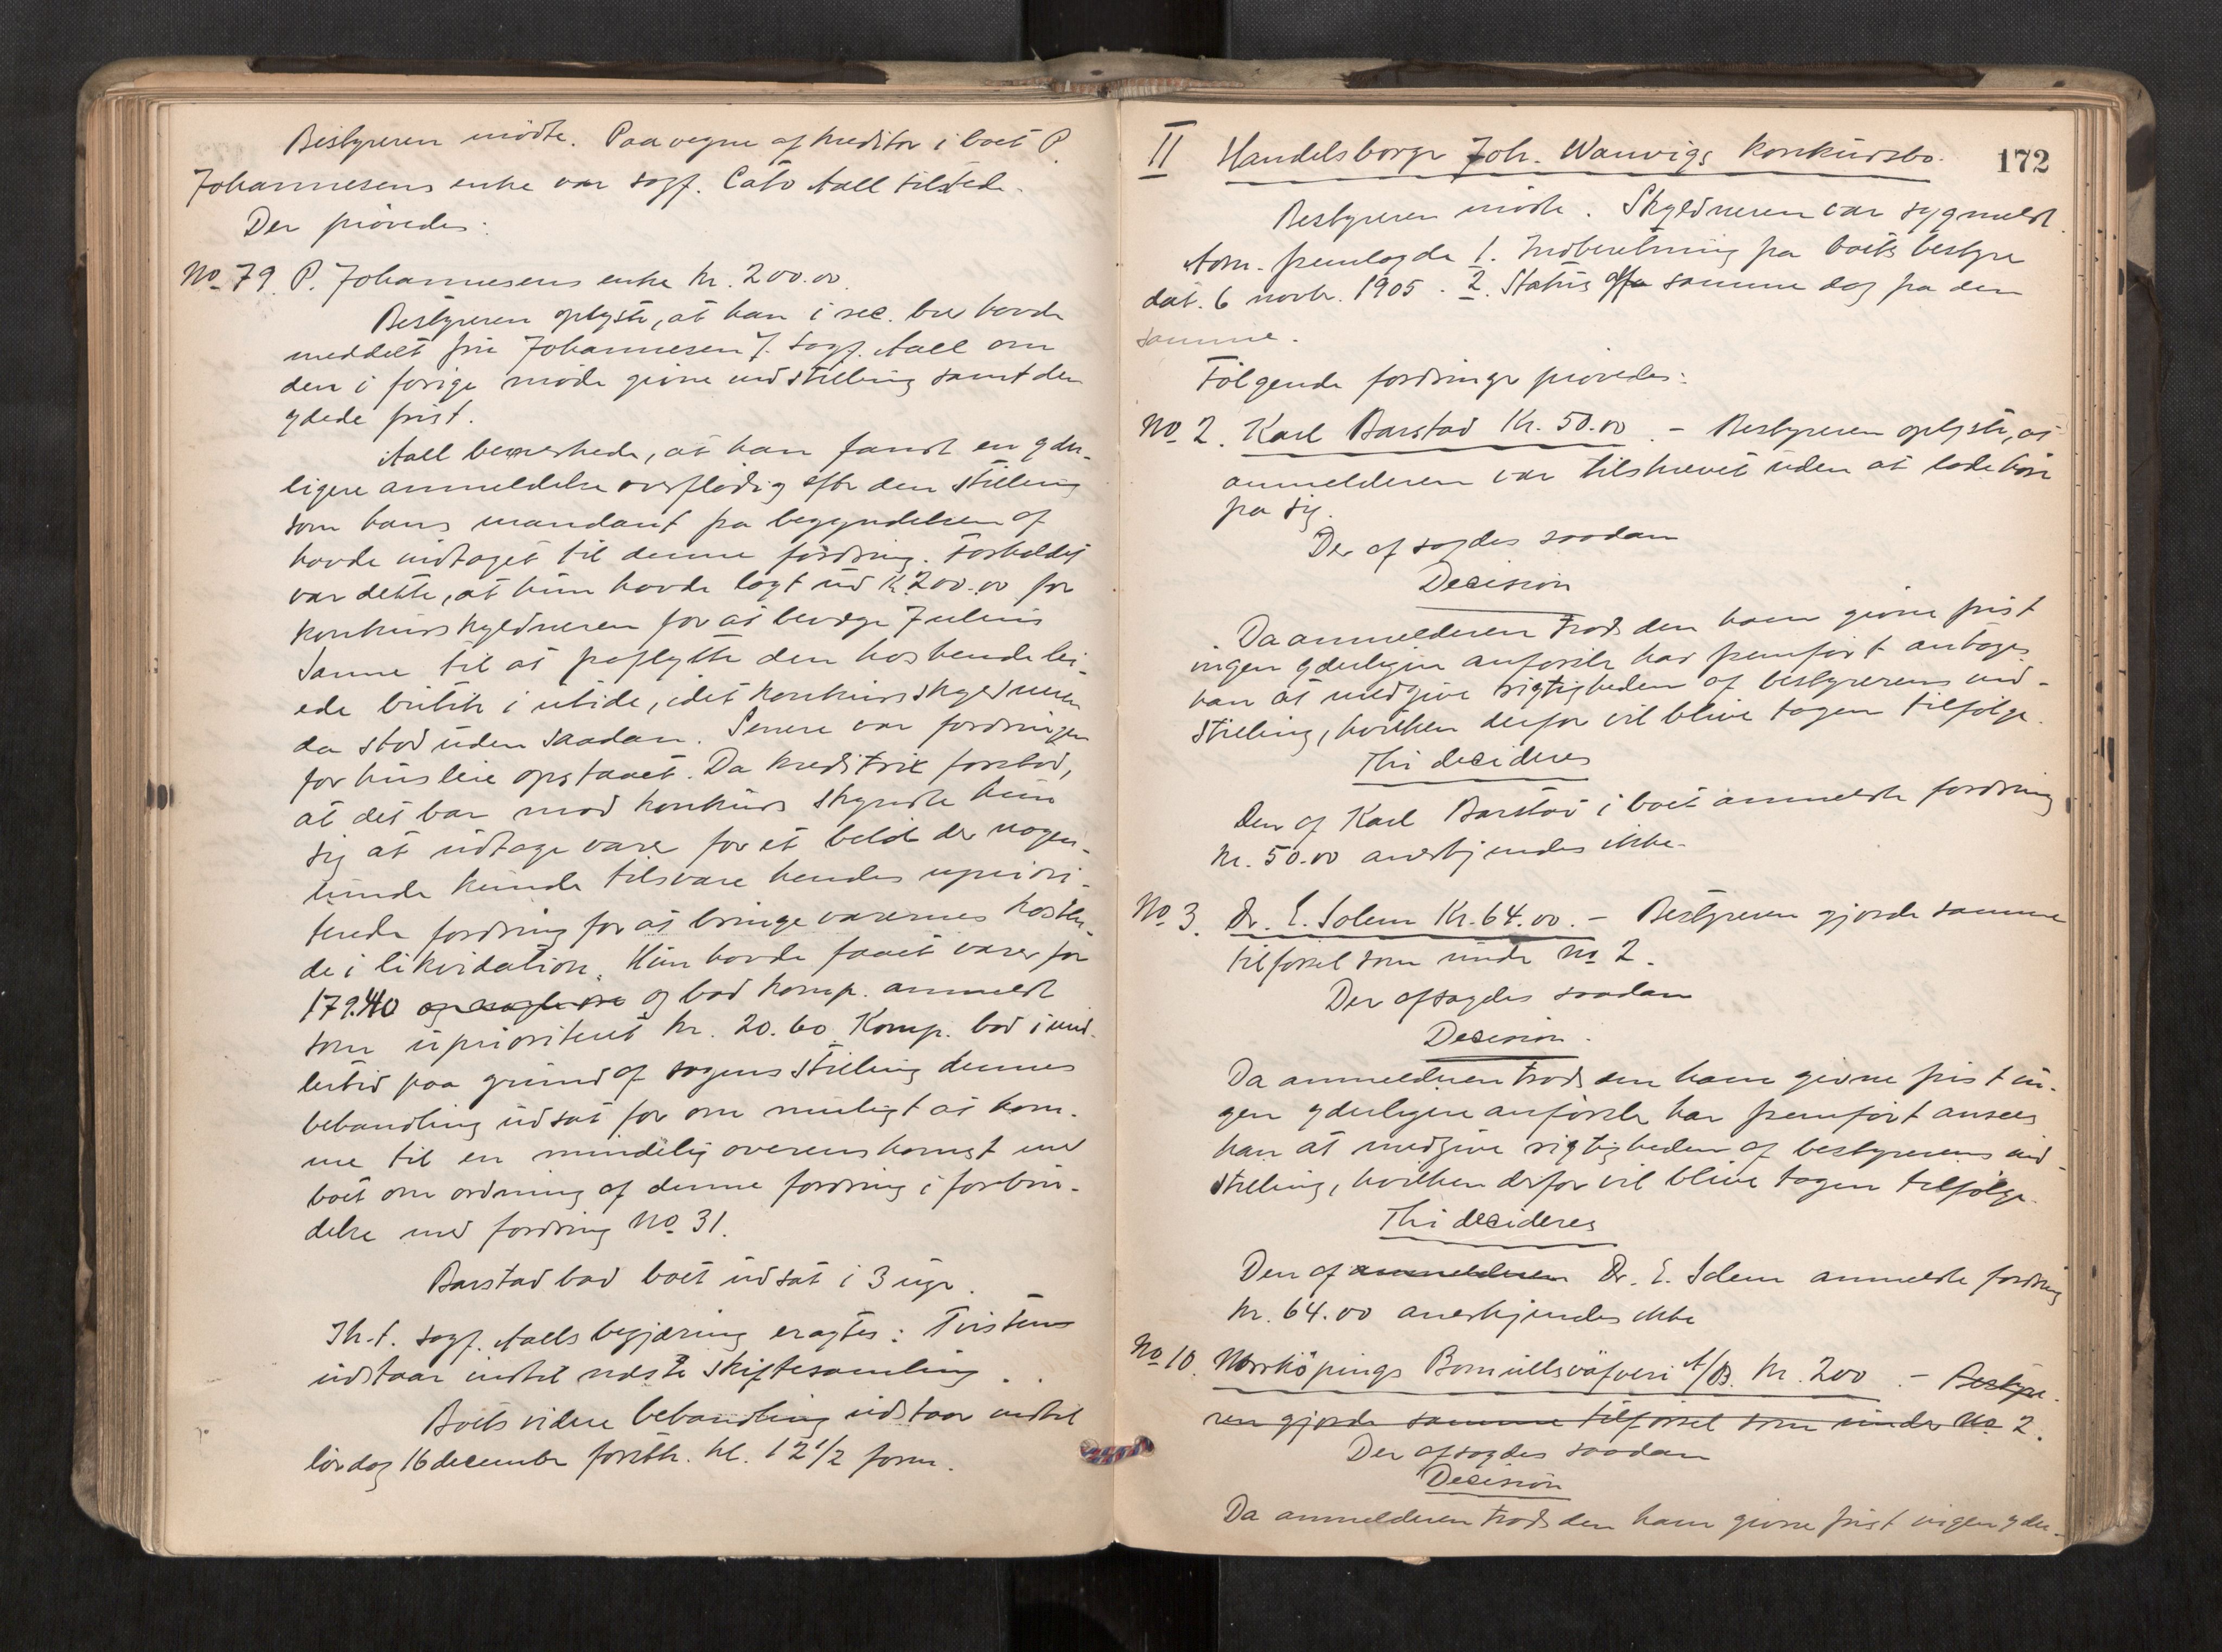 Bestyreren mödte. Paa vegne af kreditor i boet P.
Johannesens enke var sagf. Cato Aall tilstede.
Der prövedes:
No 79. P. Johannesens enke kr. 200.00.
Bestyreren oplyste, at han i rec. brev havde
meddelt fru Johannesen f. sagf. Aall om
den i forrige möde givne indstilling samt den
ydede frist.
Aall bemerkede, at han fandt en yder-
ligere anmeldelse overflödig efter den stilling
som hans mandant fra begyndelsen af
havde indtaget til denne fordring. Forholdet
var dette, at hun havde lagt ud kr 200.00 for
konkursskyldneren for at bevæge Julius
Sanne til at fraflytte den hos hende lei-
ede butik i utide, idet konkursskyldneren
da stod uden saadan. Senere var fordringen
for husleie opstaaet. Da kreditrix forstod,
at det bar mod konkurs skyndte hun
sig at udtage varer for et belöb der nogen-
lunde kunde tilsvare hendes upriori-
terede fordring for at bringe varernes kosten-
de i likvidation. Hun havde faaet varer for
179.40 og bad komp. anmeldt
som uprioriteret kr. 20.60. Komp. bad imid-
lertid paa grund af sagens stilling dennes
behandling udsat for om muligt at kom-
me til en mindelig overenskomst med
boet om ordning af denne fordring i forbin-
delse med fordring No 31.
Barstad bad boet udsat i 3 uger.
Th. t. sagf. Aalls begjæring eragtes: Tvisten
udstaar indtil næste skiftesamling.
Boets videre behandling udstaar indtil
lördag 16 december förstk. kl. 12 1/2 form.
172
II Handelsborger Joh. Wanvigs konkursbo.
Bestyreren mödte. Skyldneren var sygmeldt.
Adm. fremlagde 1. Indberetning fra boets bestyrer
dat. 6 novbr. 1905. 2. Status af samme dag fra den
samme.
Fölgende fordringer prövedes:
No 2. Karl Barstad Kr. 50.00. - Bestyreren oplyste, at
anmelderen var tilskrevet uden at lade höre
fra sig.
Der afsagdes saadan
Decision
Da anmelderen trods den ham givne frist
ingen yderligere anförsler har fremfört antages
han at medgive rigtigheden af bestyrerens ind-
stilling, hvilken derfor vil blive tagen tilfölge.
Thi decideres
Den af Karl Barstad i boet anmeldte fordring
kr. 50.00 anerkjendes ikke.
No 3. Dr. E. Solem Kr. 64.00. - Bestyreren gjorde samme
tilförsel som under No 2.
Der afsagdes saadan
Decision.
Da anmelderen trods den ham givne frist in-
gen yderligere anförsler har fremfört ansees
han at medgive rigtigheden af bestyrerens ind-
stilling, hvilken derfor vil blive tagen tilfölge.
Thi decideres
Den af anmelderen Dr. E. Solem anmeldte fordring
kr. 64.00 anerkjendes ikke
No 10. Norrköpings Bomullsväfveri A/B. kr. 200. - Bestyre-
ren gjorde samme tilförsel som under No 2.
Der afsagdes saadan
Decision
Da anmelderen trods den ham givne frist ingen yder-